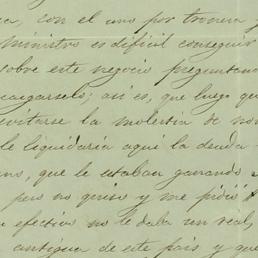 con el uno por
Ministro es dificil conseguir
sobre este negocio preguntand
encargarsele; asi es, que luego qu
evitarse la molestia de no
le liquidaria aqui la deuda
ans, que le estaban ganando
pero no quiso y me pidió
efectivo no le daba un real,
antigua de este pais y que